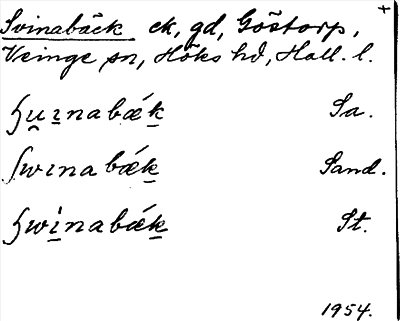 +
Svinabäck ck, gd, Göstorp,
Veinge sn, Höks hd, Hall. l.
ɧu̯ɪnabǽk Sa.
ʃwɪnabǽk Sand.
ɧwinabǽk St.
1954.